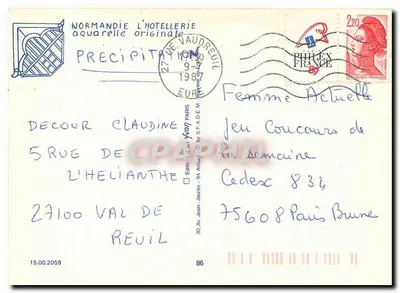 NORMANDIE L'HOTELLERIE
aquarelle originale
PRECIPITATION
27 LE VAUDREUIL
9-7
1987
EURE
PHILEX
FRANCE
89
2,20
DECOUR CLAUDINE
5 RUE DE
L'HELIANTHE
27100 VAL DE
REUIL
Editions yvon PARIS
30, Av. Jean Jaurès - 94 Arcueil
S.P.A.D.E.M.
Femme Actuelle
Jeu Concours de
la semaine
Cedex 834
75608 Paris Brune
CPARAMA
15.00.2058
86